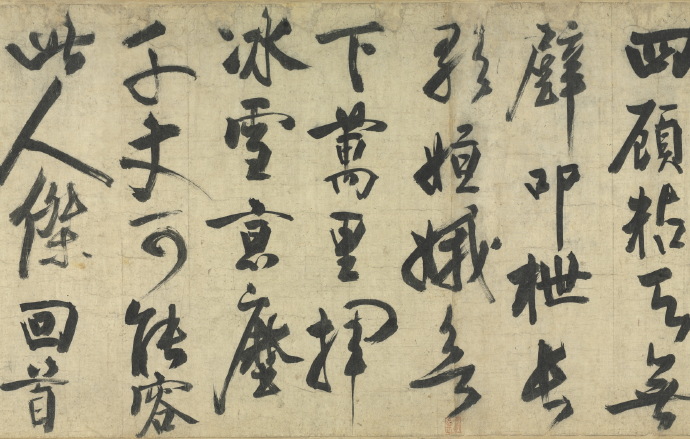 四顧粘天無
壁叩枻長
歌姮娥欲
下萬里揮
冰雪京塵
千丈可能容
此人傑回首